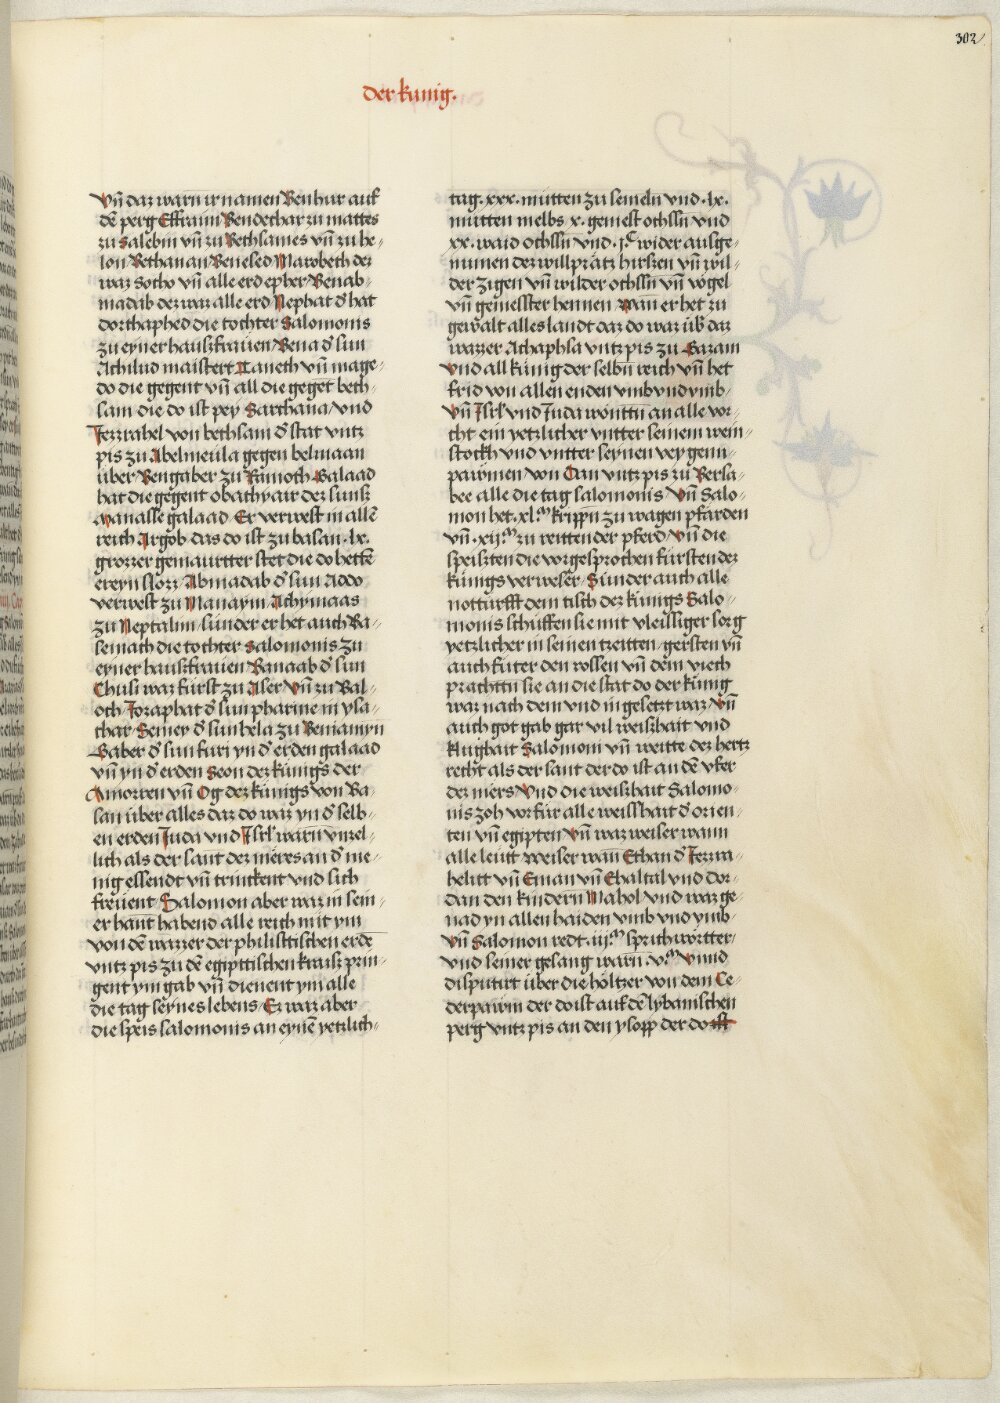 302
der kunig.
Vn̄ daz warn ir namen Benhur auf
dē perg Effraim Bendechar zu mattes
zu Salebin vn̄ zu Bethsames vn̄ zu he-
lon Bethanan Benesed Marobeth dez
waz Sotho vn̄ alle erd epher Benab-
madab dez waz alle erd Nephat d̄ hat
dorthaphed die tochter Salomonis
zu eyner hauszfrauen Bena d̄ sun
Achilud maistert Tanech vn̄ mage-
do die gegent vn̄ all die geget beth-
sam die do ist pey Sarthana vnd
Jezrahel von bethsam d̄ stat vntz
pis zu Abelmeula gegen belmaan
über Bengaber zu Ramoth Galaad
hat die gegent obathyair dez suns
Manasse galaad Er verwest in allē
reich Argob das do ist zu basan .lx.
grozzer gemaurtter stet die do hettē
ereyn slozz Abinadab d̄ sun Addo
verwest zu Manaym Achymaas
zu Neptalim sunder er het auch Ba-
semath die tochter Salomonis zu
eyner hauszfrauen Banaab d̄ sun
Chusi waz fürst zu Aser Vn̄ zu Bal-
oth Jozaphat d̄ sun pharine in ysa-
char Semey d̄ sun hela zu Beniamyn
Gaber d̄ sun furi yn d̄ erden galaad
vn̄ yn d̄ erden Seon dez künigs der
Amorren vn̄ Og dez künigs von Ba-
san über alles daz do waz yn d̄ selb-
en erden Juda vnd Isrl warn vnzel-
lich als der sant dez meres an d̄ me-
nig essendt vn̄ trinckent vnd sich
freuent Salomon aber waz in sein-
er hant habend alle reich mit ym
von dē wazzer der philisttischen erdē
vntz pis zu dē egipttischen krais prin-
gent ym gab vn̄ dienent ym alle
die tag seynes lebens Ez waz aber
die speis salomonis an eynē yetzlich-
tag .xxx. mütten zu semeln vnd .lx.
mütten melbs .x. gemest ochssn vnd
xx. waid ochssn vnd .jC wider ausge-
numen dez willpratz hirszen vn̄ wil-
der zigen vn̄ wilder ochssn vn̄ vogel
vn̄ gemesster hennen Wan er het zu
gewalt alles landt daz do waz üb̄ daz
wazzer Achaphsa vntz pis zu Gazam
Vnd all künig der selbn̄ reich vn̄ het
frid von allen enden vmb vnd vmb
Vn̄ Isrl vnd Juda wonttn an alle vor-
cht ein yetzlicher vntter seinem wein-
stockh vnd vntter seynen veygenn-
paumen von Dan vntz pis zu Bersa-
bee alle die tag salomonis Vn̄ Salo-
mon het .xl.m krippn̄ zu wagen pfarden
vn̄ .xij.m zu reitten der pferd Vn̄ die
speiszten die vorgesprochen fürsten dez
künigs verweser Sunder auch alle
notturfft dem tisch dez künigs Salo-
monis schüffen sie mit vleissiger sorg
yetzlicher in seinen tzeitten gersten vn̄
auch futer den rossen vn̄ dem viech
prachttn sie an die stat do der künig
waz nach dem vnd in gesetzt waz Vn̄
auch got gab gar vil weiszhait vnd
klughait Salomoni vn̄ weitte dez hertz
recht als der sant der do ist an dē vfer
dez mers Vnd die weiszhait Salomo-
nis zoh vor für alle weisshait d̄ orien-
ten vn̄ egipten Vn̄ waz weiser wann
alle leutt weiser wan Ethan d̄ Jezra-
helitt vn̄ Eman vn̄ Chaltal vnd Dor-
dan den kindern Mahol vnd waz ge-
nad yn allen haiden vmb vnd ymb
Vn̄ Salomon redt .iij.m sprichwörtter
vnd seiner gesang warn .v.m Vnnd
disputirt über die höltzer von dem Ce-
derpawm der do ist auf dē lybanischen
perg vntz pis an den ysopp der do